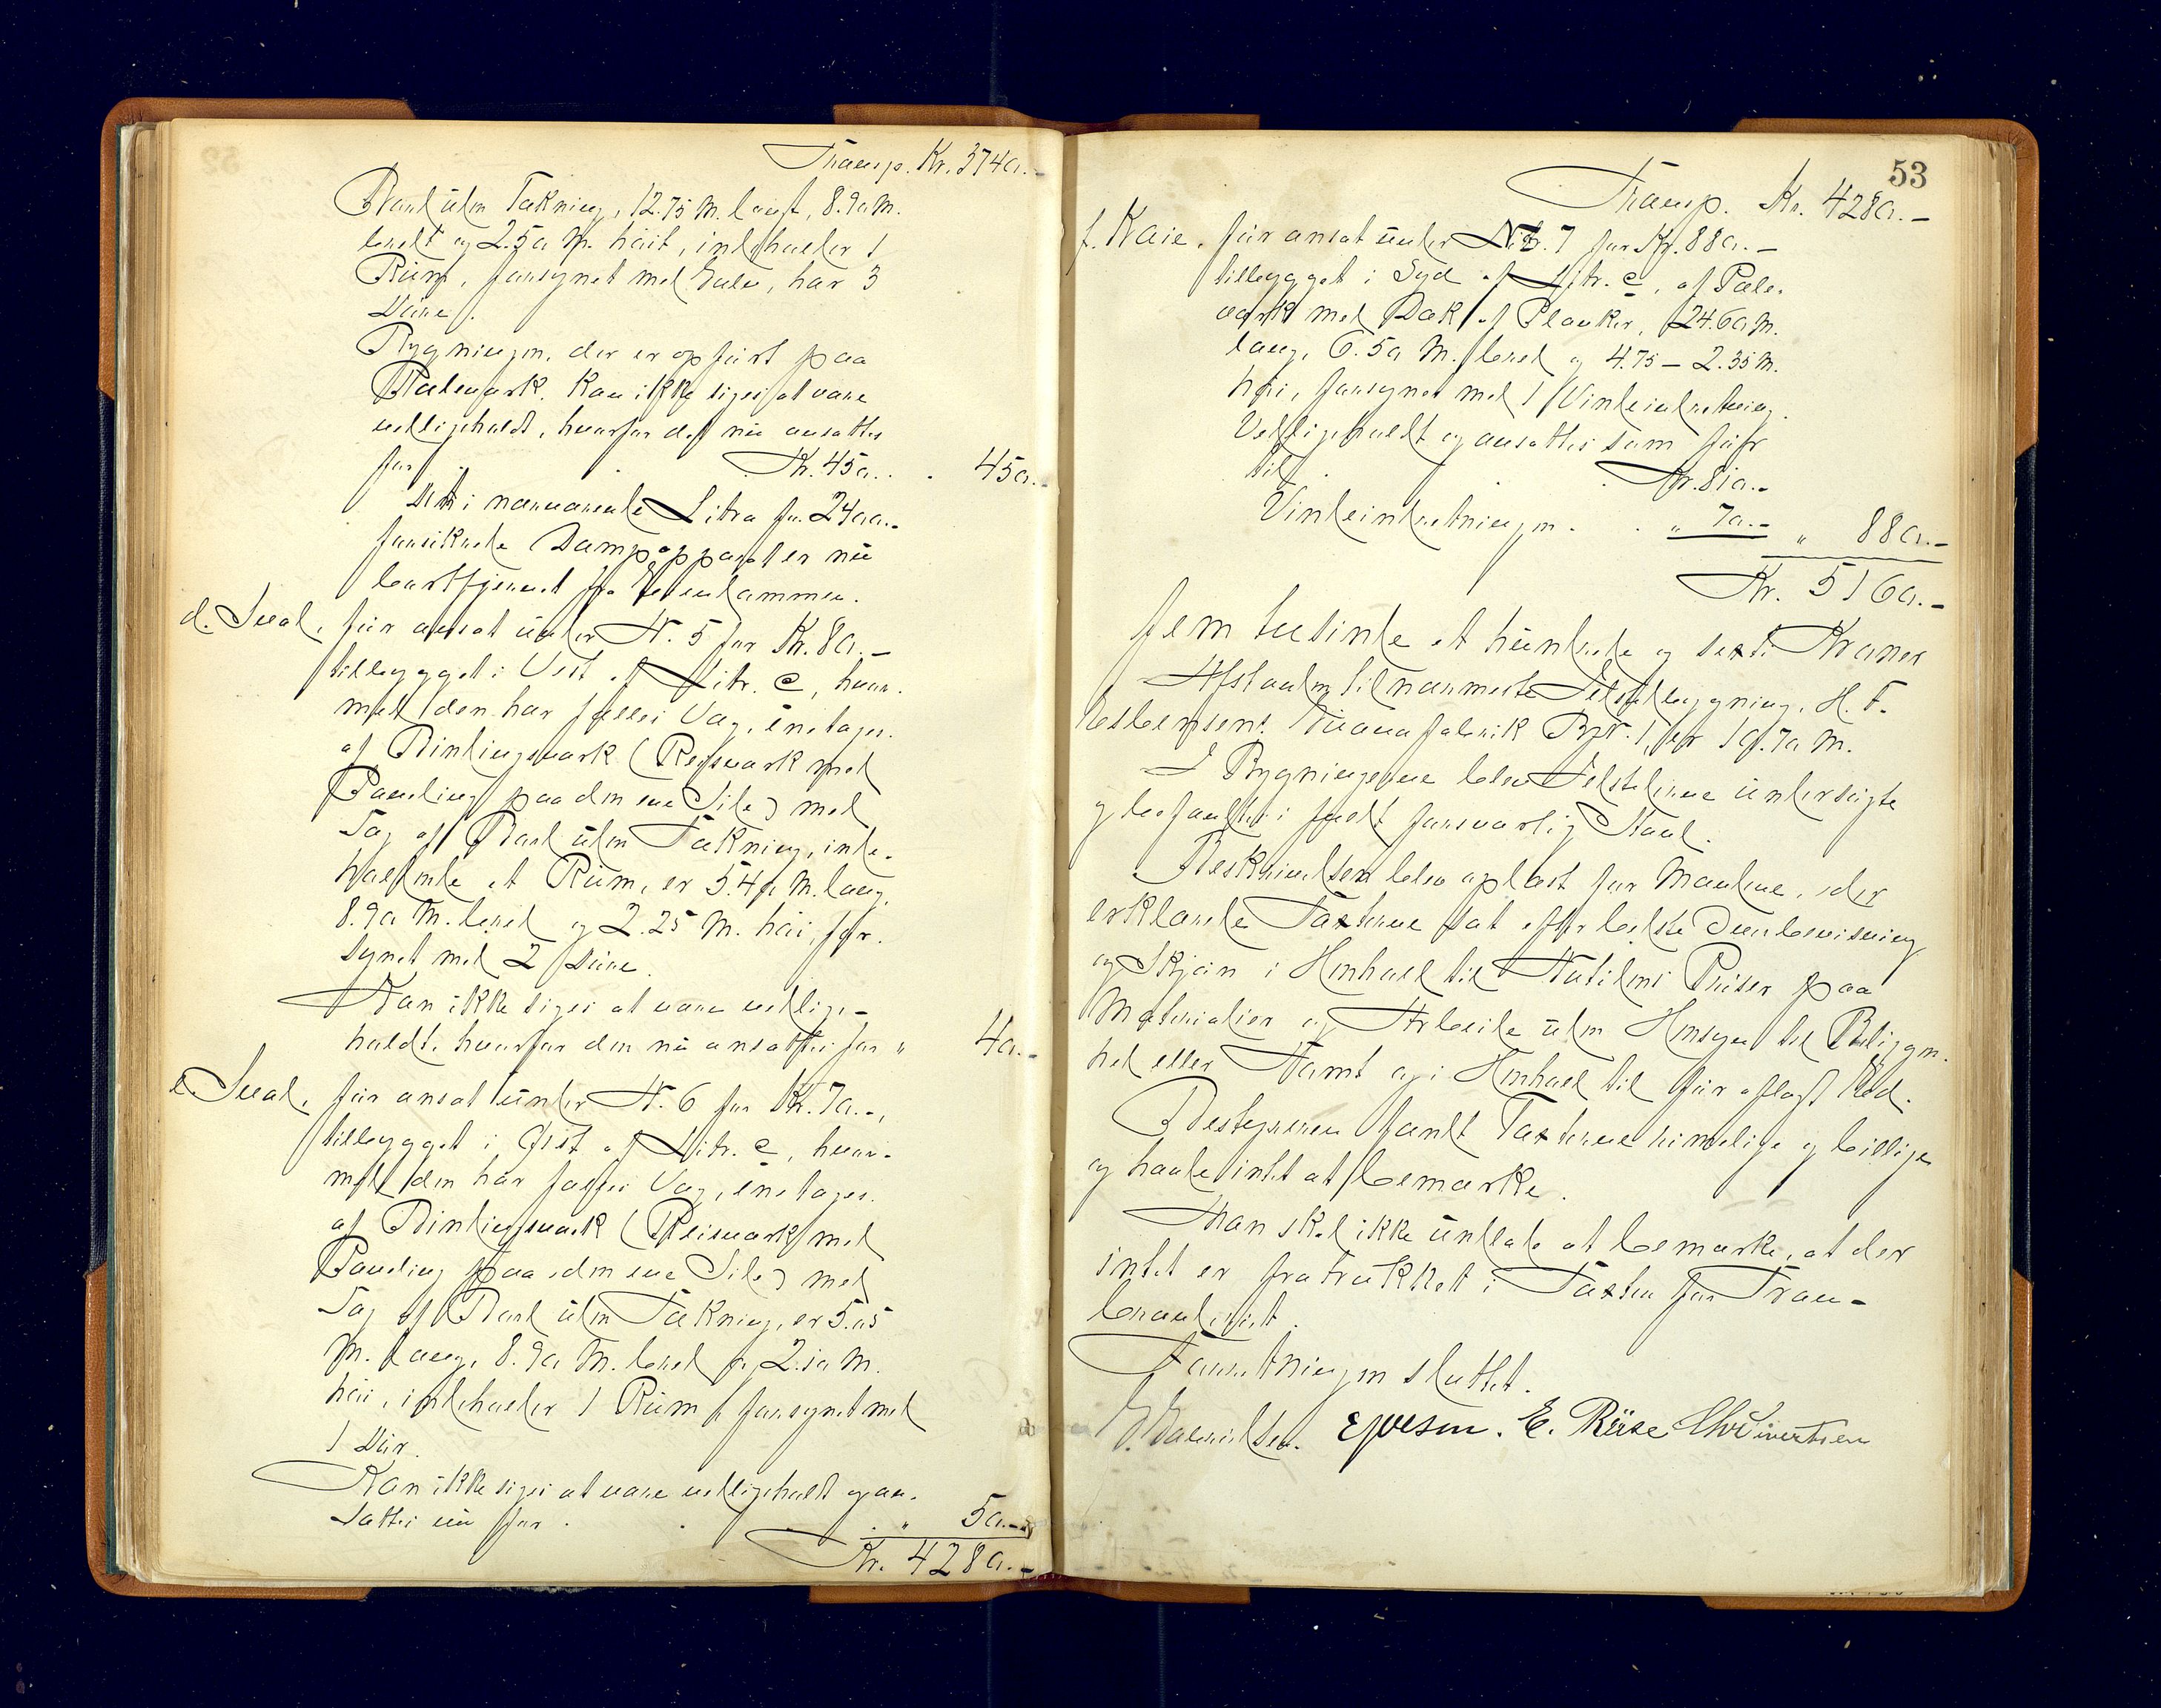 Transp. Kr. 3740.-
Bord uden Tækning, 12.75 M. langt, 8.90 M.
bredt og 2.50 M. høit, indeholder 1
Rum, forsynet med Gulv, har 3
Døre.
Bygningen, der er opført paa
Pæleværk, kan ikke siges at være
vedligeholdt, hvorfor det nu ansættes
for . . Kr. 450. . 450.-
Det i nærværende Litra for 2400.-
forsikrede Dampapparat er nu
bortfjernet fra Eiendommen.
d. Sval, før ansat under N. 5 for Kr. 80.-
tilbygget i Vest af Litr. c, hvor-
med den har fælles Væg, enetages.
af Bindingsværk (Reisværk med
Paneling paa den ene Side) med
Tag af Bord uden Tækning, inde-
holdende et Rum, er 5.40 M. lang,
8.90 M. bred og 2.25 M. høi, for-
synet med 2 Døre.
Kan ikke siges at være vedlige-
holdt, hvorfor den nu ansættes for " 40.-
e. Sval, før ansat under N. 6 for Kr. 70.-,
tilbygget i Øst af Litr. c, hvor-
med den har fælles Væg, enetages.
af Bindingsværk (Reisværk med
Paneling paa den ene Side) med
Tag af Bord uden Tækning, er 5.05
M. lang, 8.90 M. bred og 2.10 M.
høi, indeholder 1 Rum, forsynet med
1 Dør.
Kan ikke siges at være vedligeholdt og an-
sættes nu for . . . " 50.-
Kr. 4280.-
53
Transp. Kr. 4280.-
f. Kaie, før ansat under N. 7 for Kr. 880.-
tilbygget i Syd af Litr. c, af Pæle-
værk med Dæk af Planker, 24.60 M.
lang, 6.50 M. bred og 4.75 - 2.35 M.
høi, forsynet med 1 Vindeindretning.
Vedligeholdt og ansættes som før
til . . . Kr. 810.-
Vindeindretningen . . " 70.- " 880.-
Kr. 5160.-
fem tusinde et hundrede og sexti Kroner
Afstanden til nærmeste Ildstedbygning, H. F.
Esbensens Guanofabrik Bgn. 1, er 19.70 M.
I Bygningerne blev Ildstederne undersøgte
og befandtes i fuldt forsvarlig Stand.
Beskrivelsen blev oplæst for Mændene, der
erklærede Taxterne sat efter bedste Overbevisning
og Skjøn i Henhold til Nutidens Priser paa
Materialier og Arbeide uden Hensyn til Beliggen-
hed eller Tomt og i Henhold til før aflagt Ed.
Bestyreren fandt Taxterne rimelige og billige
og havde intet at bemærke.
Man skal ikke undlade at bemærke, at der
intet er fratrukket i Taxten for Tran-
brænderiet.
Forretningen sluttet.
E. Riise Chr Sivertsen